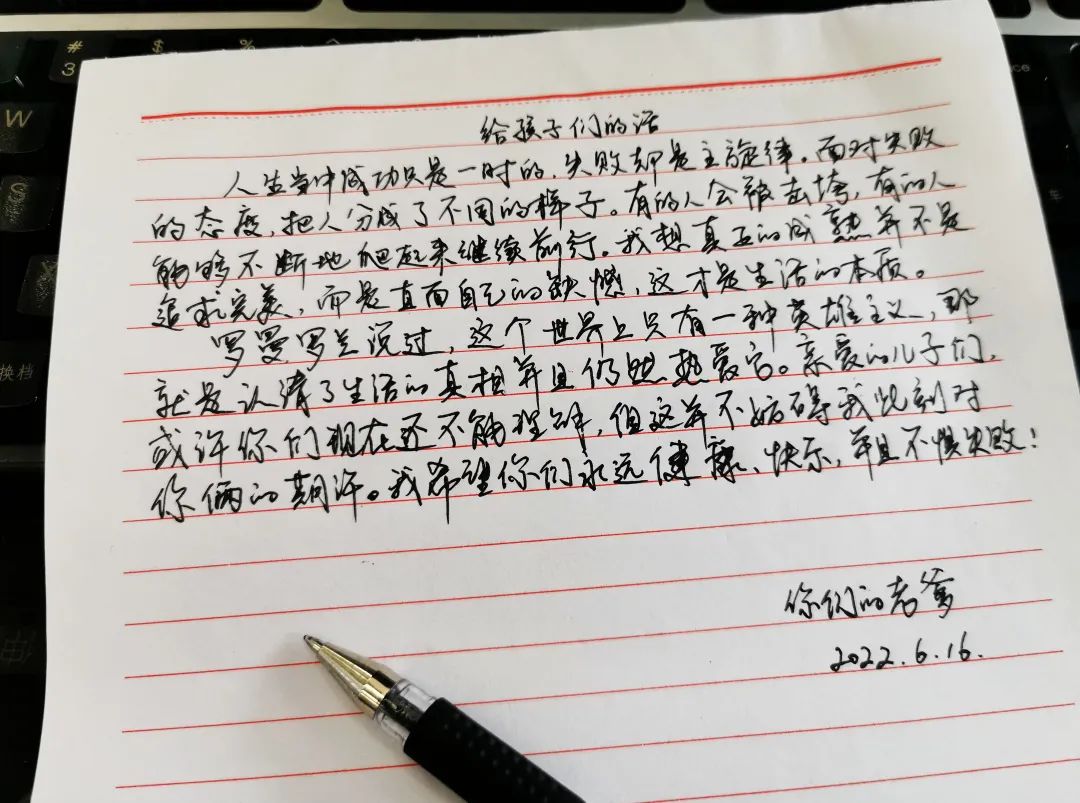 给孩子们的话
人生当中成功只是一时的，失败却是主旋律。面对失败
的态度，把人分成了不同的样子。有的人会被击垮，有的人
能够不断地爬起来继续前行。我想真正的成熟并不是
追求完美，而是直面自己的缺憾，这才是生活的本质。
罗曼罗兰说过，这个世界上只有一种英雄主义，那
就是认清了生活的真相并且仍然热爱它。亲爱的儿子们，
或许你们现在还不能理解，但这并不妨碍我此刻对
你俩的期许。我希望你们永远健康、快乐，并且不惧失败！
你们的老爹
2022.6.16.
#
3
$
%
W
S
X
换档